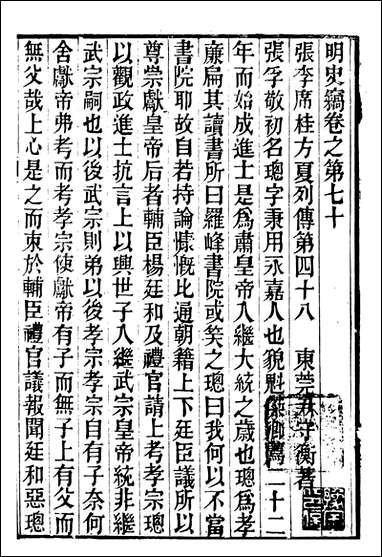 明史竊卷之第七十
張李席桂方夏列傳第四十八　東莞尹守衡著
張孚敬初名璁字秉用永嘉人也貌魁傑鄉薦二十二
年而始成進士是為肅皇帝入繼大統之歲也璁為孝
廉扁其讀書所曰羅峰書院或笑之璁曰我何以不當
書院耶故自若持論慷慨比通朝籍上下廷臣議所以
尊崇獻皇帝后者輔臣楊廷和及禮官請上考孝宗璁
以觀政進士抗言上以興世子入繼武宗皇帝統非繼
武宗嗣也以後武宗則弟以後孝宗孝宗自有子奈何
舍獻帝弗考而考孝宗使獻帝有子而無子上有父而
無父哉上心是之而束於輔臣禮官議報聞廷和惡璁